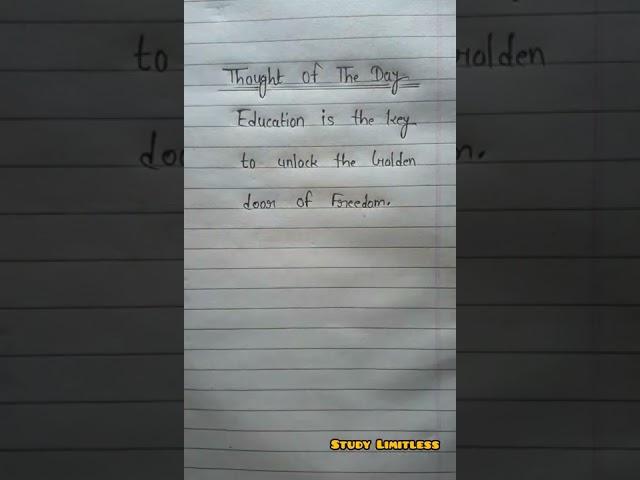 Thought of The Day
Education is the key
to unlock the Golden
door of Freedom.
STUDY LIMITLESS